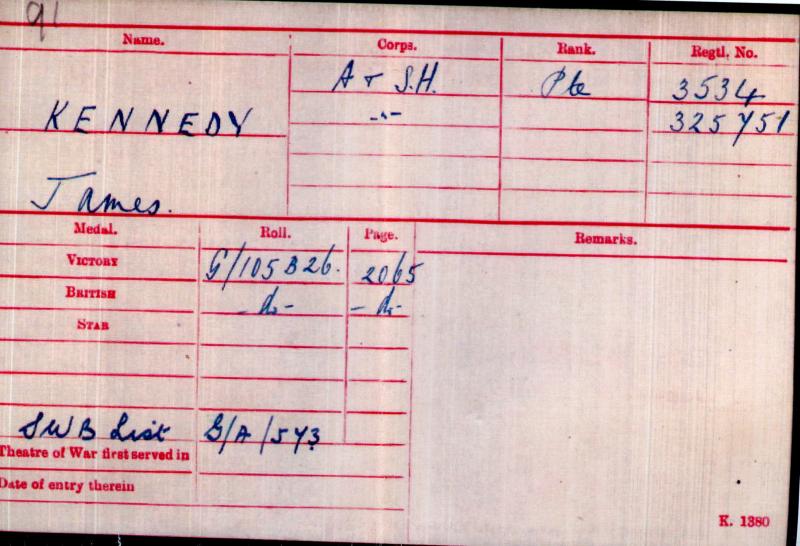 91
Name. Corps. Rank. Regtl. No.
A & S.H. Pte 3534
KENNEDY -"- 325751
James.
Medal. Roll. Page. Remarks.
VICTORY G/105 B26. 2065
BRITISH -do- -do-
STAR
SWB List G/A/573
Theatre of War first served in
Date of entry therein
K. 1380